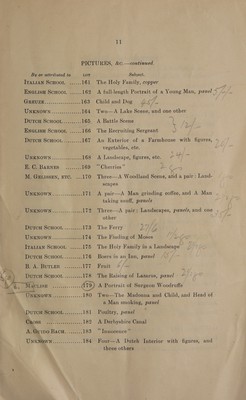 11
PICTURES, &c.—continued.
By or attributed to LOT Subject.
ITALIAN SCHOOL ......161 The Holy Family, copper
ENGLISH SCHOOL ......162 A full-length Portrait of a Young Man, panel
GREUZE ..................163 Child and Dog
UNKNOWN ...............164 Two—A Lake Scene, and one other
DUTCH SCHOOL.........165 A Battle Scene
ENGLISH SCHOOL ......166 The Recruiting Sergeant
DUTCH SCHOOL.........167 An Exterior of a Farmhouse with figures,
vegetables, etc.
UNKNOWN ...............168 A Landscape, figures, etc.
E. C. BARNES .........169 "Cherries"
M. GELISSEN, ETC. ...170 Three—A Woodland Scene, and a pair: Land-
scapes
UNKNOWN ...............171 A pair—A Man grinding coffee, and A Man
taking snuff, panels
UNKNOWN ...............172 Three—A pair; Landscapes, panels, and one
other
DUTCH SCHOOL ......173 The Ferry
UNKNOWN ...............174 The Finding of Moses
ITALIAN SCHOOL ......175 The Holy Family in a Landscape
DUTCH SCHOOL ......176 Boors in an Inn, panel
B. A. BUTLER .........177 Fruit
DUTCH SCHOOL ......178 The Raising of Lazarus, panel
179 A Portrait of Surgeon Woodroffe
UNKNOWN ...............180 Two—The Madonna and Child, and Head of
a Man smoking, panel
DUTCH SCHOOL ......181 Poultry, panel
CROSS ..................182 A Derbyshire Canal
A. GUIDO BACH.......183 "Innocence"
UNKNOWN ...............184 Four—A Dutch Interior with figures, and
three others